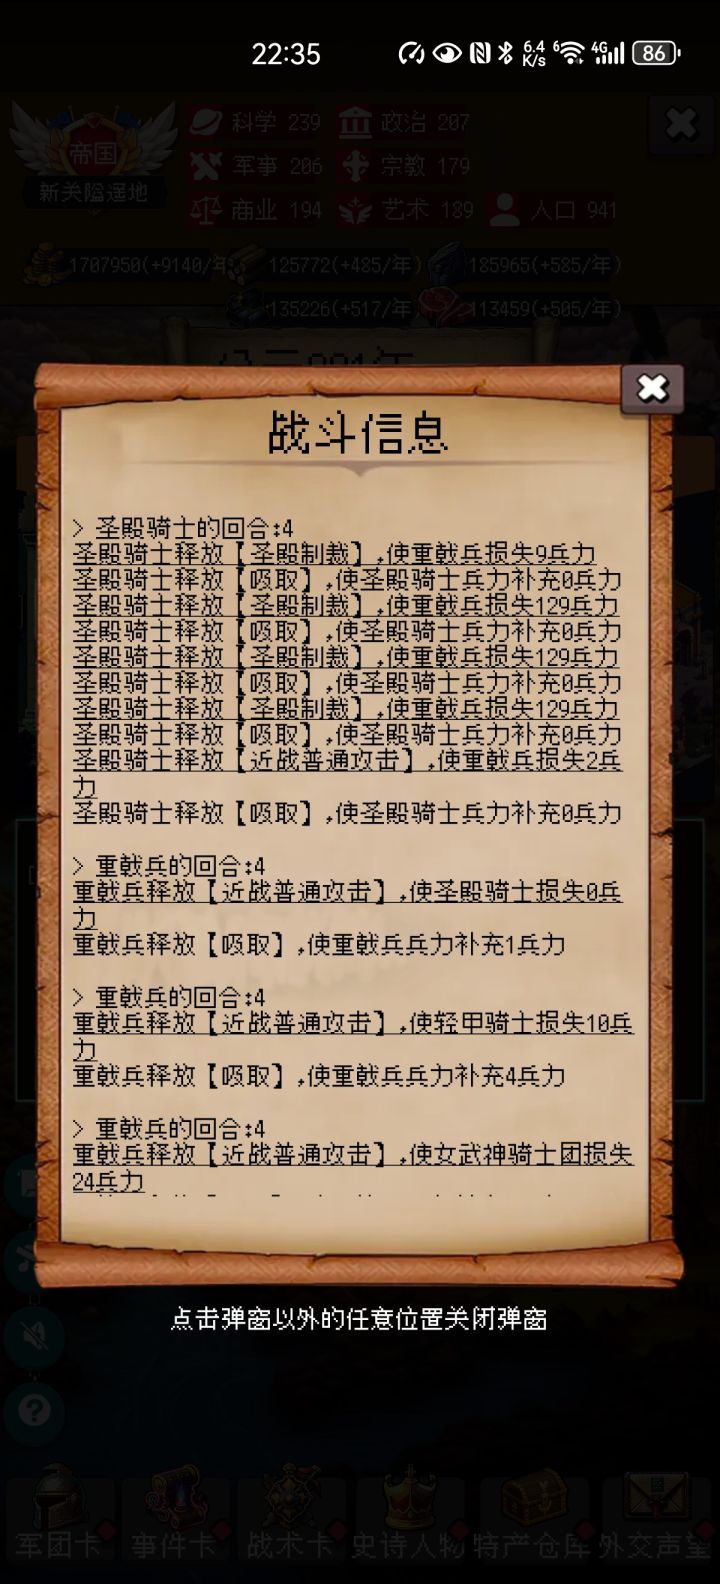 22:35
6.4 K/s
6
4G
86
帝国
科学 239
政治 207
新关隘遥地
军事 206
宗教 179
商业 194
艺术 189
人口 941
1707950(+9140/年
125772(+485/年)
185965(+585/年)
135226(+517/年)
113459(+505/年)
战斗信息
> 圣殿骑士的回合:4
圣殿骑士释放【圣殿制裁】,使重戟兵损失9兵力
圣殿骑士释放【吸取】,使圣殿骑士兵力补充0兵力
圣殿骑士释放【圣殿制裁】,使重戟兵损失129兵力
圣殿骑士释放【吸取】,使圣殿骑士兵力补充0兵力
圣殿骑士释放【圣殿制裁】,使重戟兵损失129兵力
圣殿骑士释放【吸取】,使圣殿骑士兵力补充0兵力
圣殿骑士释放【圣殿制裁】,使重戟兵损失129兵力
圣殿骑士释放【吸取】,使圣殿骑士兵力补充0兵力
圣殿骑士释放【近战普通攻击】,使重戟兵损失2兵
力
圣殿骑士释放【吸取】,使圣殿骑士兵力补充0兵力
> 重戟兵的回合:4
重戟兵释放【近战普通攻击】,使圣殿骑士损失0兵
力
重戟兵释放【吸取】,使重戟兵兵力补充1兵力
> 重戟兵的回合:4
重戟兵释放【近战普通攻击】,使轻甲骑士损失10兵
力
重戟兵释放【吸取】,使重戟兵兵力补充4兵力
> 重戟兵的回合:4
重戟兵释放【近战普通攻击】,使女武神骑士团损失
24兵力
点击弹窗以外的任意位置关闭弹窗
军团卡
事件卡
战术卡
史诗人物
特产仓库
外交声望